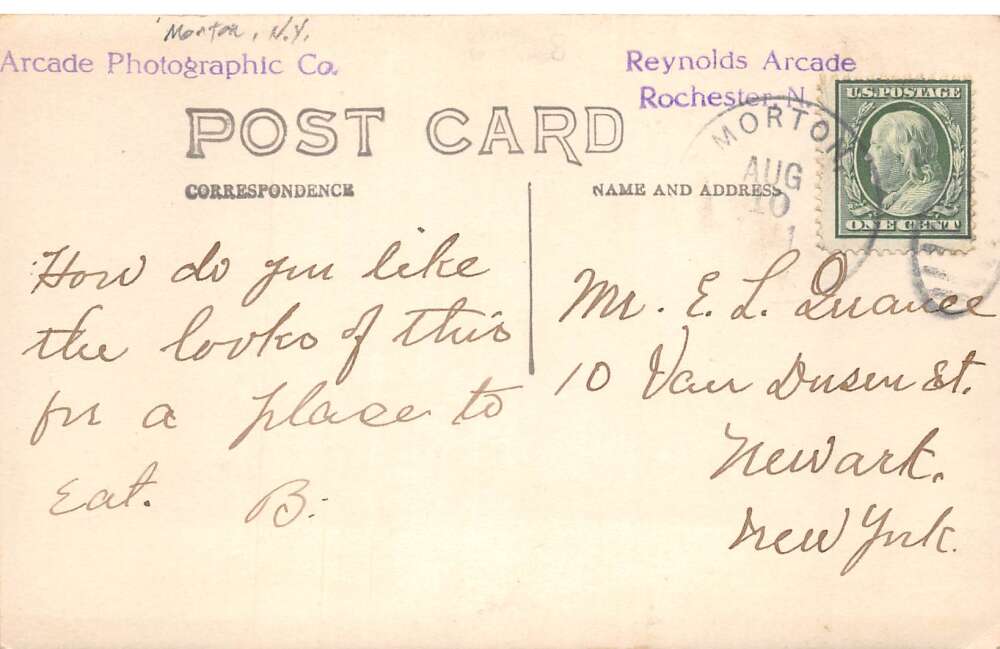 Morton, N.Y.
Arcade Photographic Co.
Reynolds Arcade
Rochester, N.
POST CARD
CORRESPONDENCE
NAME AND ADDRESS
MORTON
AUG
10
1
U.S. POSTAGE
ONE CENT
How do you like
the looks of this
for a place to
Eat. B.
Mr. E. L. Quance
10 Van Dusen St.
Newark.
New York.